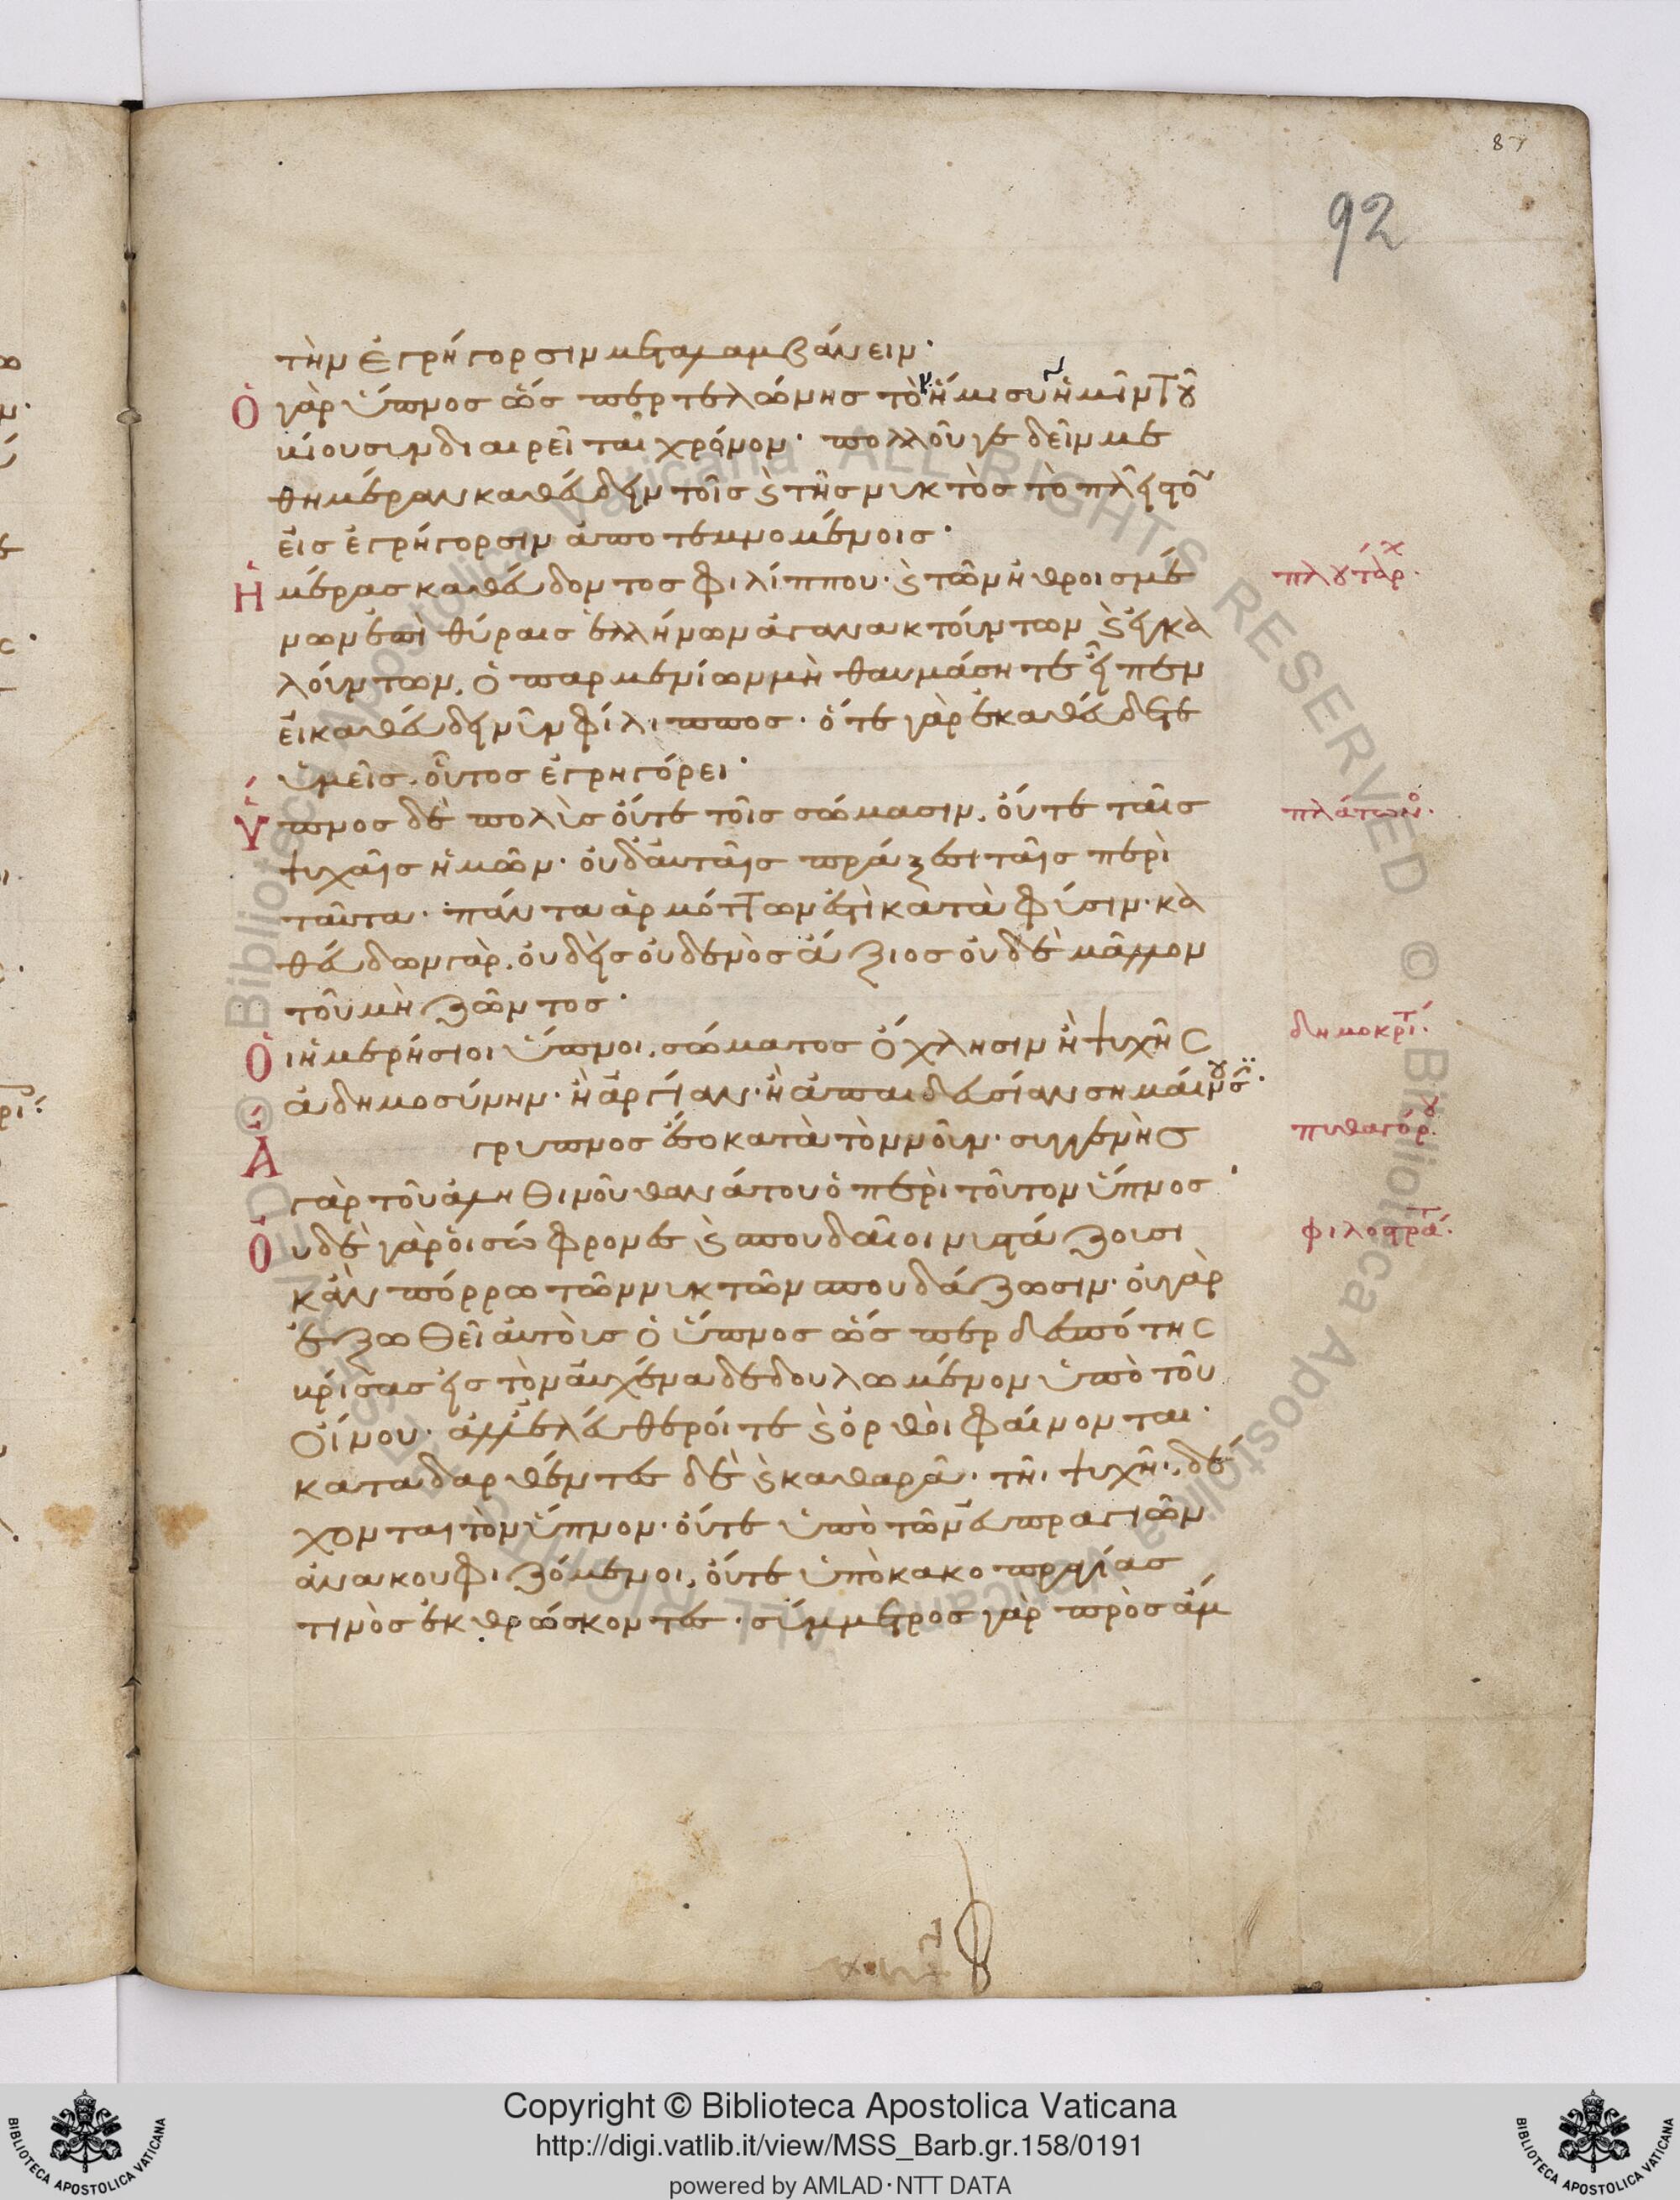 87
92
τὴν ἐγρήγορσιν μεταλαμβάνειν·
Ὁ γὰρ ὕπνος ὥσπερ τελώνης τὸ ἥμισυ ἡμῖν τοῦ
βίου συνδιαιρεῖται χρόνον· πολλοῦ γε δεῖν με
θημέραν καθεύδειν τοῖς καὶ τῆς νυκτὸς τὸ πλεῖστον
εἰς ἐγρήγορσιν ἀποτεμνομένοις·
πλουτάρχ.
Ἡμέρας καθεύδοντος φιλίππου· καὶ τῶν ἠθροισμέ
νων ἐπὶ θύραις ἑλλήνων ἀγανακτούντων καὶ ἐγκα
λούντων, ὁ παρμενίων μὴ θαυμάσητε εἶπεν
εἰ καθεύδει νῦν φίλιππος· ὅτε γὰρ ἐκαθεύδετε
ὑμεῖς, οὗτος ἐγρηγόρει·
πλάτων.
Ὕπνος δὲ πολὺς οὔτε τοῖς σώμασιν, οὔτε ταῖς
ψυχαῖς ἡμῶν· οὐδ' αὖ ταῖς πράξεσι ταῖς περὶ
ταῦτα· πάντα ἁρμόττων ἐστὶ κατὰ φύσιν· κα
θεύδων γὰρ, οὐδεὶς οὐδενὸς ἄξιος οὐδὲ μᾶλλον
τοῦ μὴ ζῶντος·
δημοκρίτ.
Οἱ ἡμερήσιοι ὕπνοι, σώματος ὄχλησιν ἢ ψυχῆς
ἀδημοσύνην· ἢ ἀργίαν· ἢ ἀπαιδευσίαν σημαίνουσι·
πυθαγόρου.
Ἄγρυπνος ἔσο κατὰ τὸν νοῦν· συγγενὴς
γὰρ τοῦ ἀληθινοῦ θανάτου ὁ περὶ τοῦτον ὕπνος·
φιλοστρά.
Οὐδὲ γὰρ οἱ σώφρονες καὶ σπουδαῖοι νυστάζουσι
κἂν πόρρω τῶν νυκτῶν σπουδάζωσιν· οὐ γὰρ
ἐξωθεῖ αὐτοὺς ὁ ὕπνος ὥσπερ δεσπότης
εἰς τὸν αὐχένα δεδουλωμένον ὑπὸ τοῦ
οἴνου· ἀλλ' ἐλευθεροί τε καὶ ὀρθοὶ φαίνονται·
καταδαρθέντες δὲ καὶ καθαρᾷ· τῇ ψυχῇ· δέ
χονται τὸν ὕπνον· οὔτε ὑπὸ τῶν εὐπραγιῶν
ἀνακουφιζόμενοι, οὔτε ὑπὸ κακοπραγίας
τινὸς ἐκθρώσκοντες· σύμμετρος γὰρ πρὸς ἄμ
© Biblioteca Apostolica Vaticana ALL RIGHTS RESERVED © Biblioteca Apostolica Vaticana ALL RIGHTS RESERVED
Copyright © Biblioteca Apostolica Vaticana
http://digi.vatlib.it/view/MSS_Barb.gr.158/0191
powered by AMLAD·NTT DATA
BIBLIOTECA APOSTOLICA VATICANA
BIBLIOTECA APOSTOLICA VATICANA